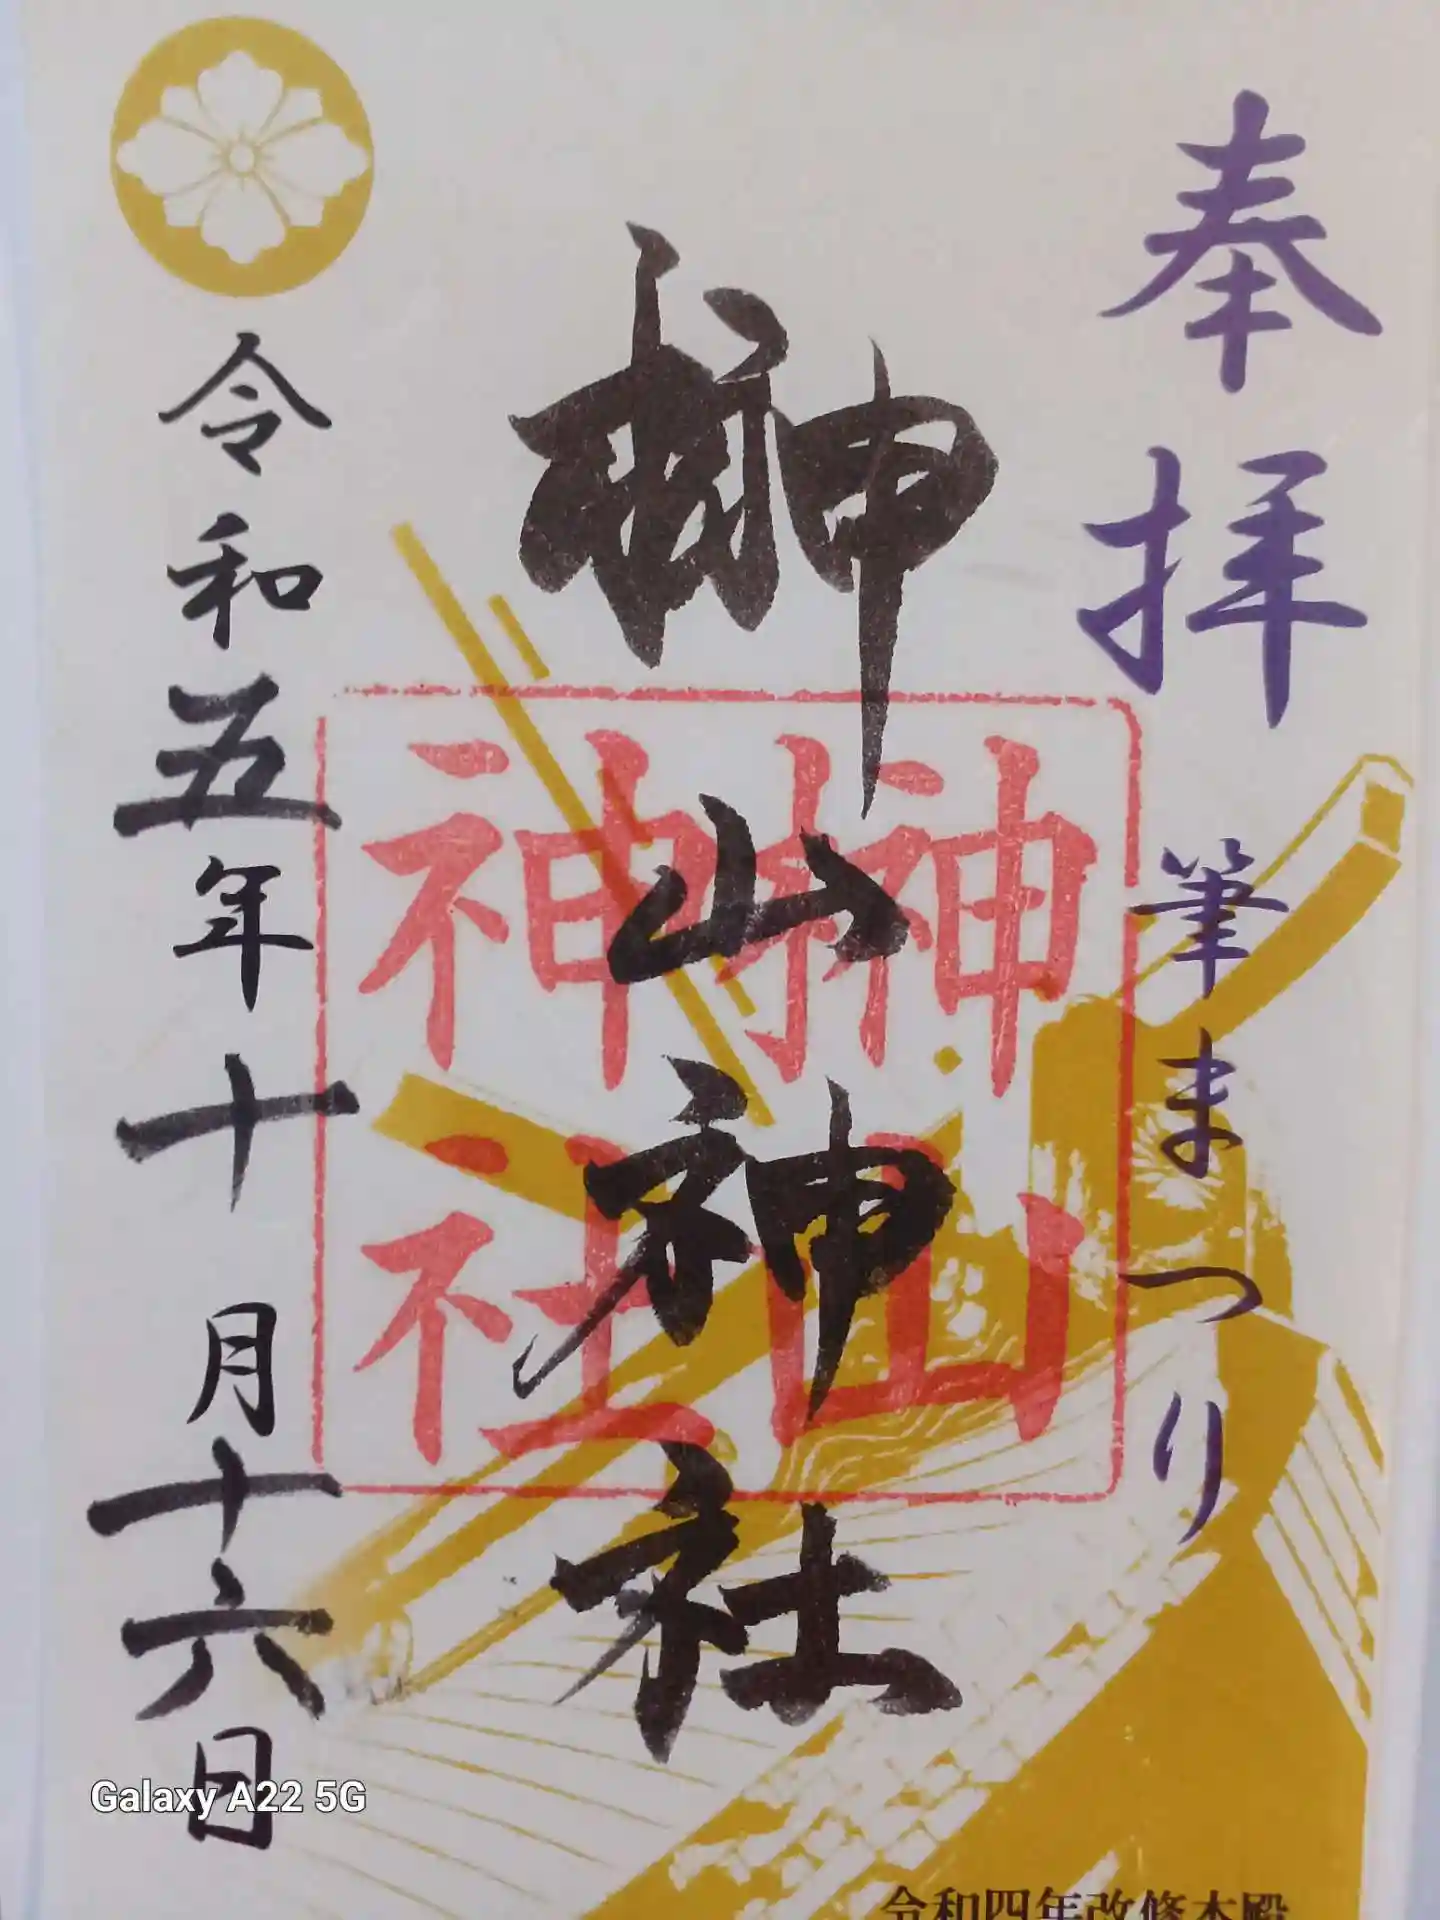 奉拝 筆まつり
榊山神社
榊山
神社
令和五年十月十六日
令和四年改修本殿
Galaxy A22 5G